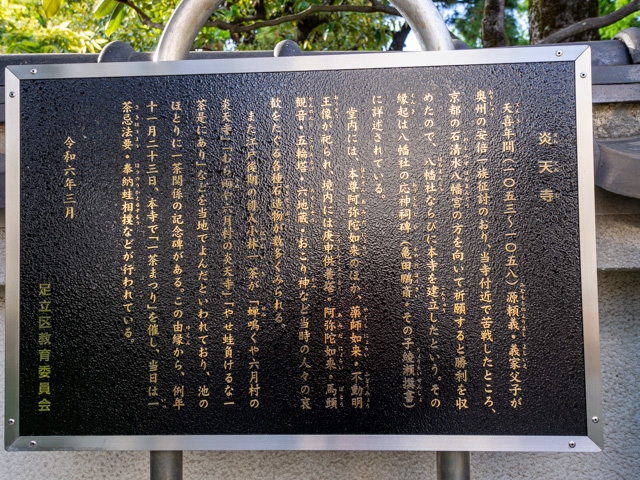 炎天寺
天喜年間(一〇五三〜一〇五八)源頼義・義家父子が
奥州の安倍一族征討のおり、当寺付近で苦戦したところ、
京都の石清水八幡宮の方を向いて祈願すると勝利を収
めたので、八幡社ならびに本寺を建立したという。その
縁起は八幡社の応神祠碑(亀田鵬斎・その子綾瀬撰書)
に詳述されている。
堂内には、本尊阿弥陀如来のほか、薬師如来・不動明
王像が祀られ、境内には庚申供養塔・阿弥陀如来・馬頭
観音・五輪塔・六地蔵・おこり神など当時の人々の哀
歓をたぐる各種石造物が数多くみられる。
また江戸後期の俳人小林一茶が「蝉鳴くや六月村の
炎天寺」「むら雨や六月村の炎天寺」「やせ蛙負けるな一
茶是にあり」などを当地でよんだといわれており、池の
ほとりに一茶関係の記念碑がある。この由縁から、例年
十一月二十三日、本寺で「一茶まつり」を催し、当日は一
茶忌法要・奉納蛙相撲などが行われている。
令和六年三月
足立区教育委員会